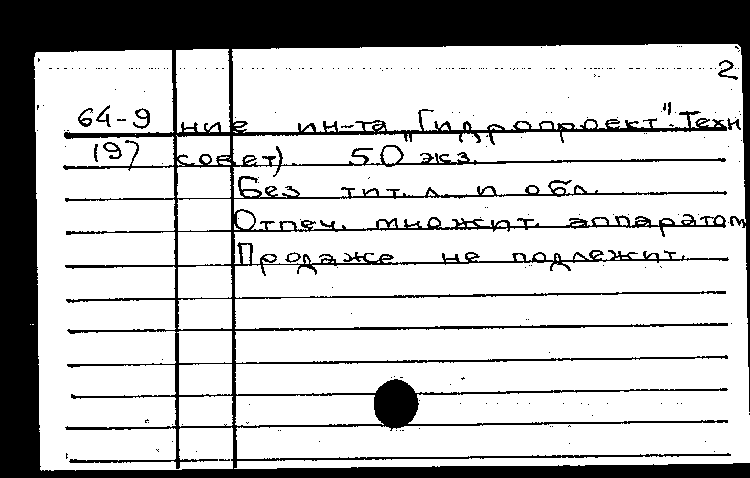 2
64-9 ние ин-та „Гидропроект". Техн
197 совет). 50 экз.
Без тит. л. и обл.
Отпеч. множит. аппаратом
Продаже не подлежит.